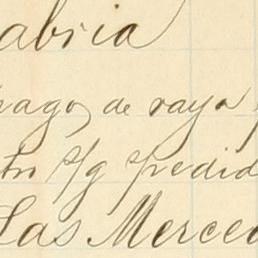 abrica
pago, de raya
tro s/g pedid
Las Merced